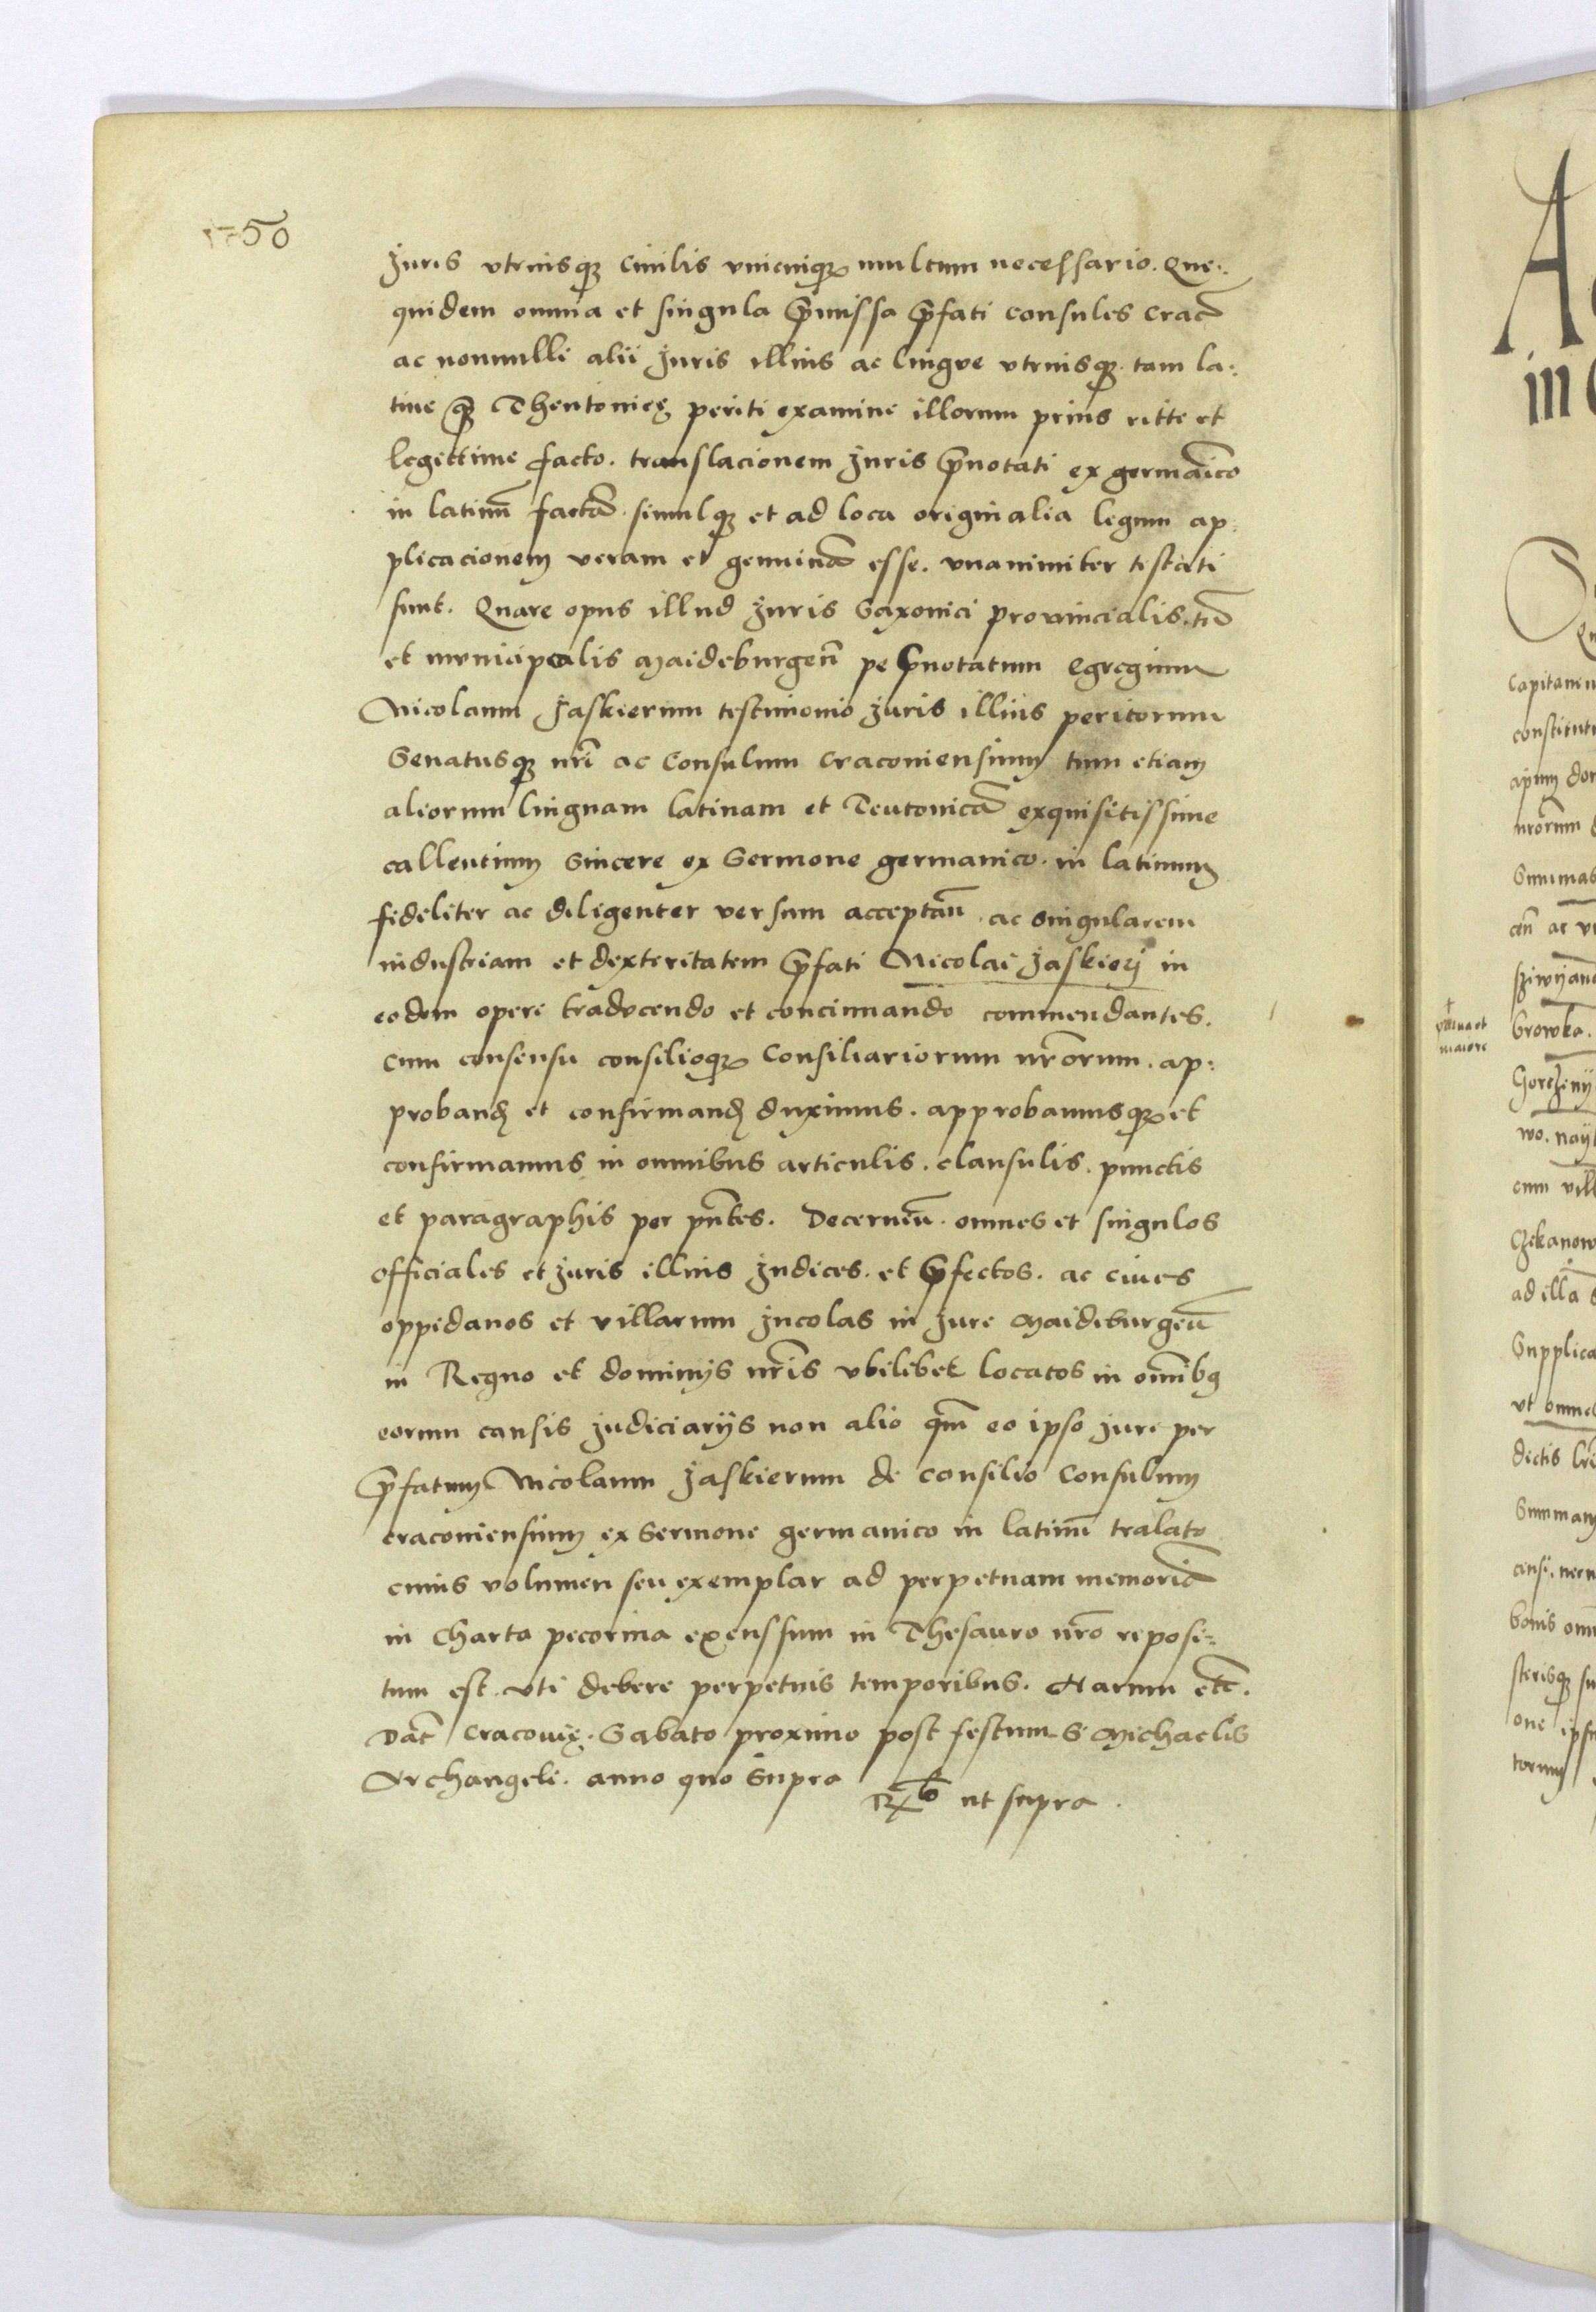 1750
Juris vtruisqꝫ ciuilis vnicuiqꝫ multum necessario. Que:
quidem omnia et singula p̄missa p̄fati consules crac̄
ac nonnulli alii Juris illius ac lingue vtriusqꝫ tam la:
tine q̄ꝫ Theutonicę periti examine illorum prius ritte et
legittime facto. translacionem Juris p̄notati ex germāico
in latinū factā. simulqꝫ et ad loca originalia legum ap:
plicacionem veram et genuinā esse. vnanimiter testati
sunt. Quare opus illud Juris Saxonici prouincialis. tū
et municipalis Maideburgeñ pe p̄notatum Egregium
Nicolaum Jaskierum testimonio Juris illius peritorum
Senatusqꝫ nr̄i ac Consulum Cracouiensium tum etiam
aliorum linguam latinam et Teutonicā exquisitissime
callentium sincere ex Sermone germanico. in latinum
fideliter ac diligenter versum acceptañ. ac singularem
industriam et dexteritatem p̄fati Nicolai Jaskierj in
eodem opere traducendo et concinnando commendantes.
cum consensu consilioqꝫ Consiliariorum nr̄orum. ap:
probanḍ et confirmanḍ duximus. approbamusqꝫ et
confirmamus in omnibus articulis. clausulis. punctis
et paragraphis per pn̄tes. Decerneñ. omnes et singulos
officiales et Juris illius Judices. et p̄fectos. ac ciues
oppidanos et villarum Jncolas in Jure Maideburgeñ
in Regno et dominijs nr̄is vbilibet locatos in om̄ibꝫ
eorum causis Judiciarijs non alio qm̄ eo ipso Jure per
p̄fatum Nicolaum Jaskierum de consilio Consulum
cracouiensium ex Sermone germanico in latinū tralato
cuius volumen seu exemplar ad perpetuam memoriā
in Charta pecorina exenssum in Thesauro nr̄o reposi:
tum est. vti debere perpetuis temporibus. Harum etc̄.
Dat̄ Cracouię. Sabato proximo post festum S Michaelis
Archangeli. anno quo Supra
Rx̄ło ut supra.
A
in
Capitaneu
constitut
apum dor
nr̄orum
Summas
ceñ ac v
browka.
Gorcżeny
wo. nay
cum vill
Cżekanow
ad illā
Supplica
vt omne
dictis
Summam
bonis om̄
sterisqꝫ su
one ipsu
torum
maiore